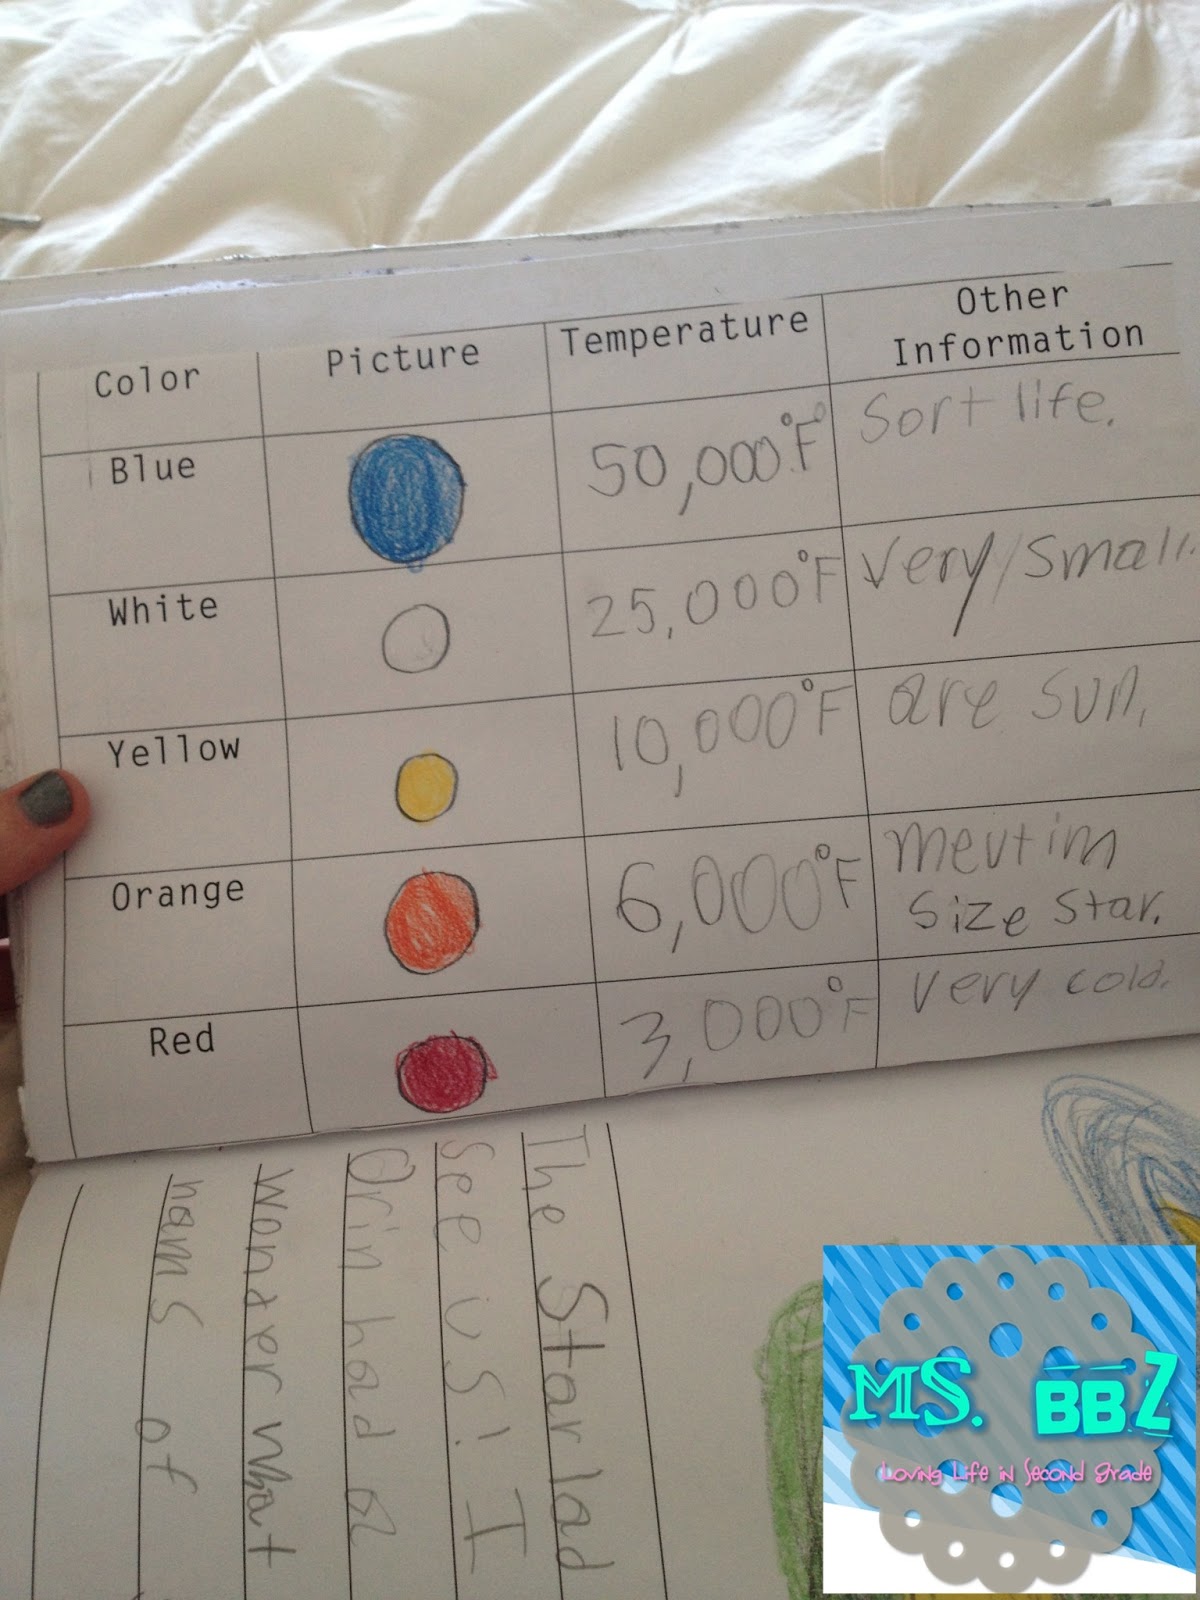 Color Picture Temperature Other
Information
Blue 50,000°F Sort life.
White 25,000°F very small.
Yellow 10,000°F are sun.
Orange 6,000°F meutim
size star.
Red 3,000°F very cold.
The Star lad
See us! I
Orin had a
Wonder what
hams of
MS. BBZ
Loving Life in Second Grade